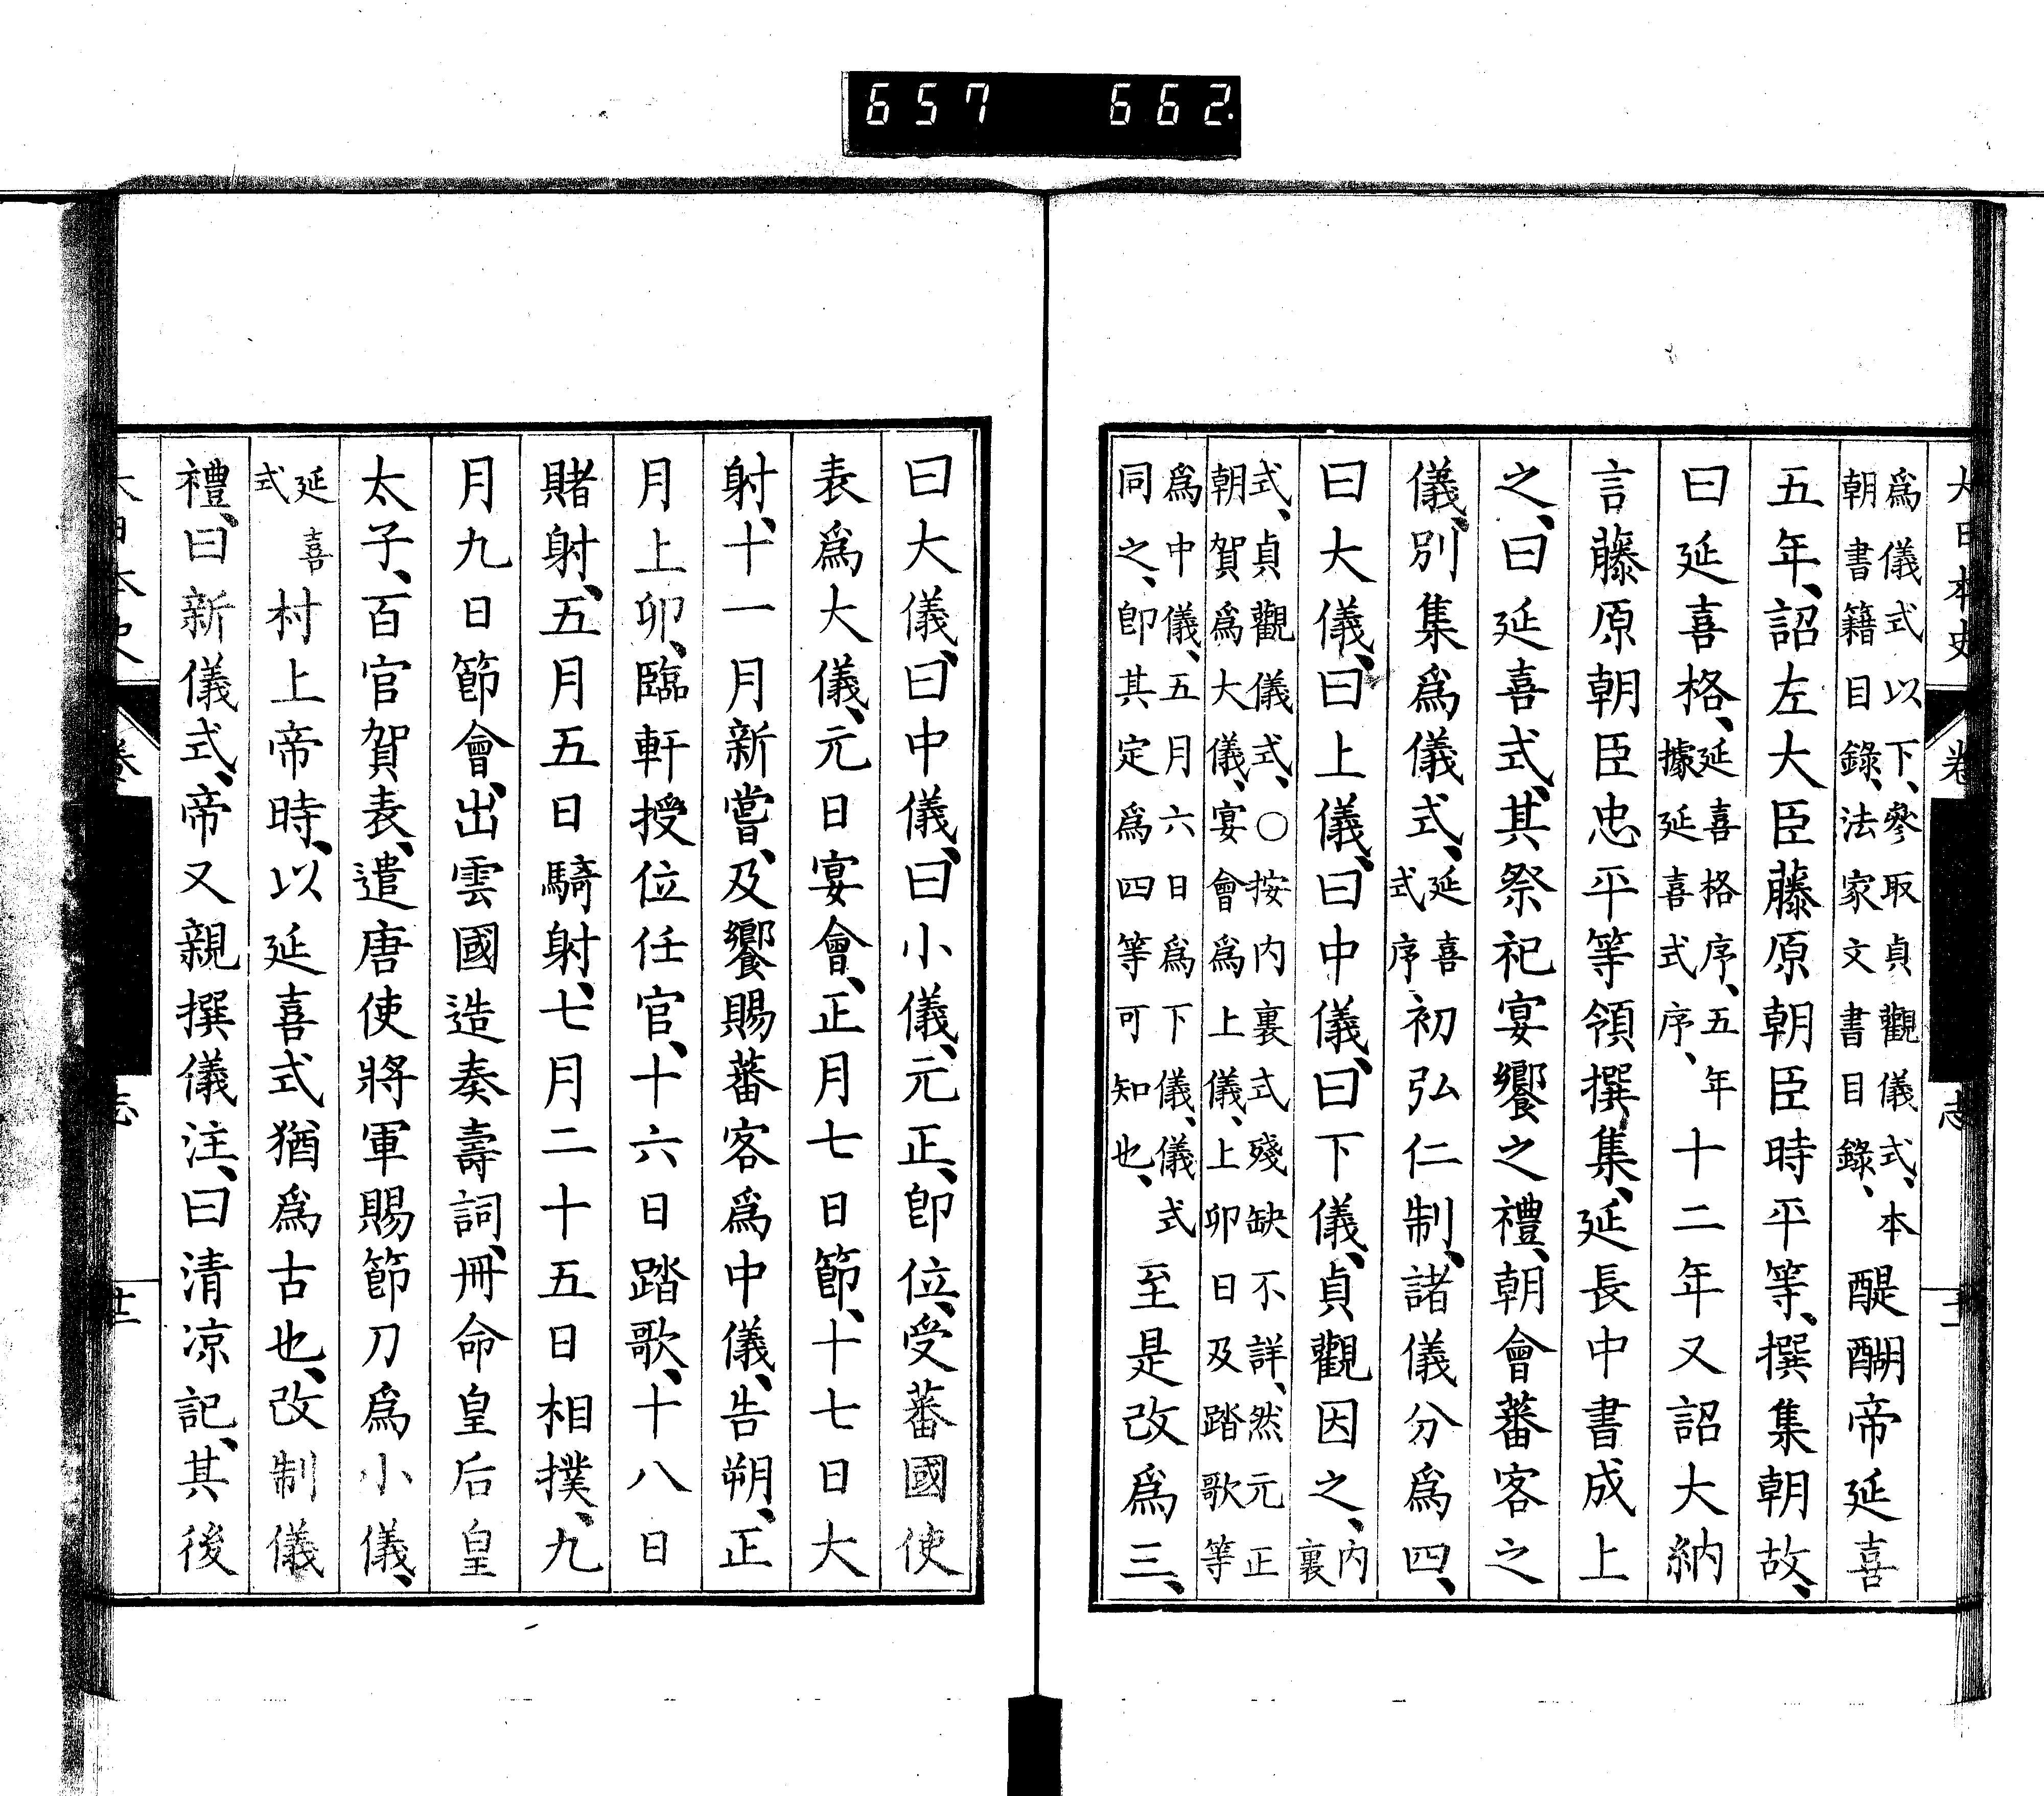 657 662
大日本史 卷 志
爲儀式以下、參取貞觀儀式、本
朝書籍目錄、法家文書目錄、
醍醐帝延喜
五年、詔左大臣藤原朝臣時平等、撰集朝故、
曰延喜格、
延喜格序、五年
據延喜式序、
十二年又詔大納
言藤原朝臣忠平等領撰集、延長中書成上
之、曰延喜式、其祭祀宴饗之禮、朝會蕃客之
儀、別集爲儀式、
延喜
式序
初弘仁制、諸儀分爲四、
曰大儀、曰上儀、曰中儀、曰下儀、貞觀因之、
內
裏
式、貞觀儀式、○按内裏式殘缺不詳、然元正
朝賀爲大儀、宴會爲上儀、上卯日及踏歌等
爲中儀、五月六日爲下儀、儀式
同之、卽其定爲四等可知也、
至是改爲三、
曰大儀、曰中儀、曰小儀、元正、卽位、受蕃國使
表爲大儀、元日宴會、正月七日節、十七日大
射、十一月新嘗、及饗賜蕃客爲中儀、告朔、正
月上卯、臨軒授位任官、十六日踏歌、十八日
賭射、五月五日騎射、七月二十五日相撲、九
月九日節會、出雲國造奏壽詞、冊命皇后皇
太子、百官賀表、遣唐使將軍賜節刀爲小儀、
延喜
式
村上帝時、以延喜式猶爲古也、改制儀
禮、曰新儀式、帝又親撰儀注、曰清涼記、其後
大日本史 卷 志